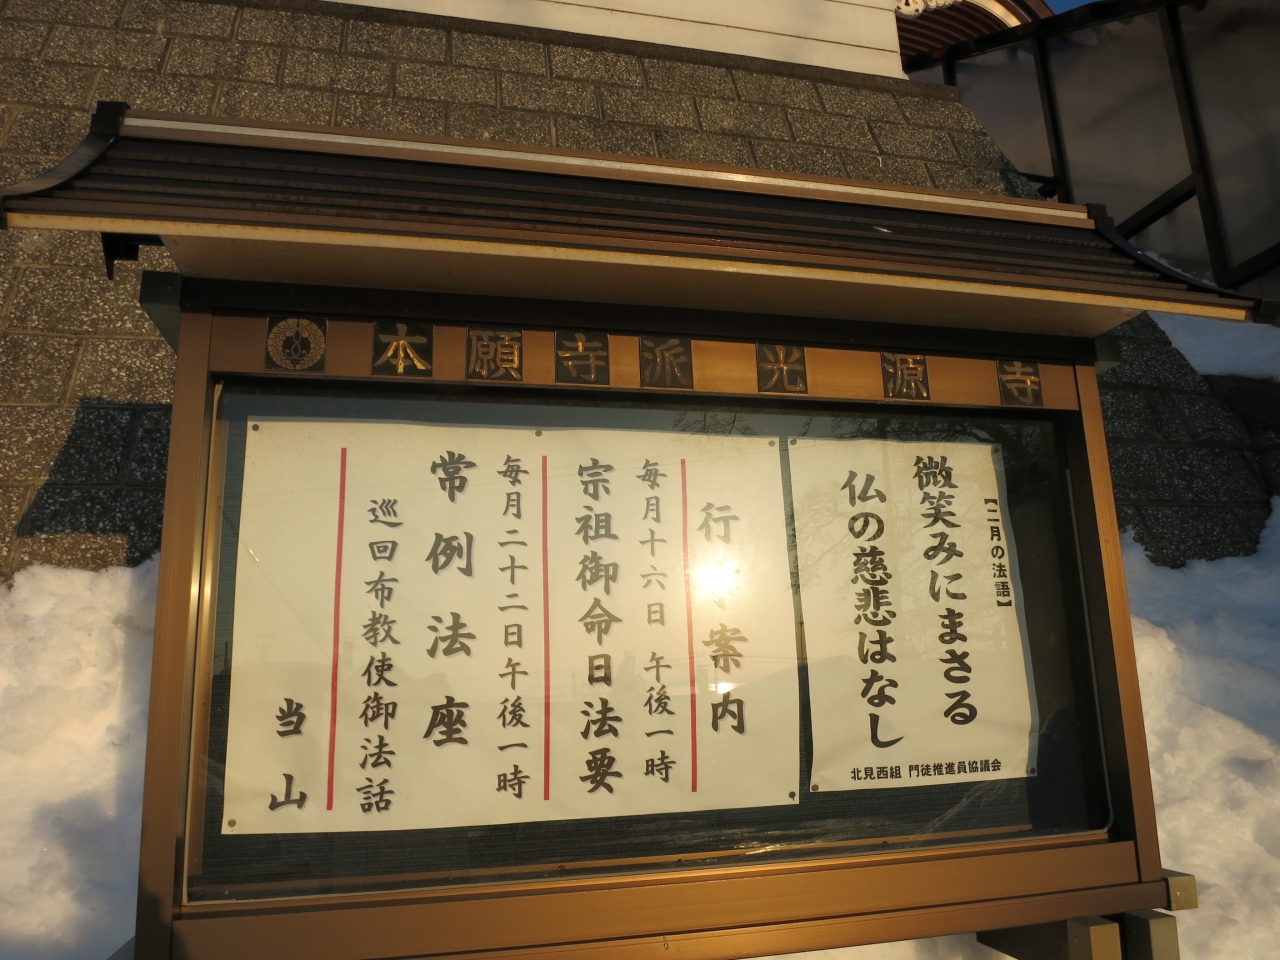 本願寺派光源寺
【二月の法語】
微笑みにまさる
仏の慈悲はなし
北見西組 門徒推進員協議会
行事案内
毎月十六日 午後一時
宗祖御命日法要
毎月二十二日午後一時
常例法座
巡回布教使御法話
当山